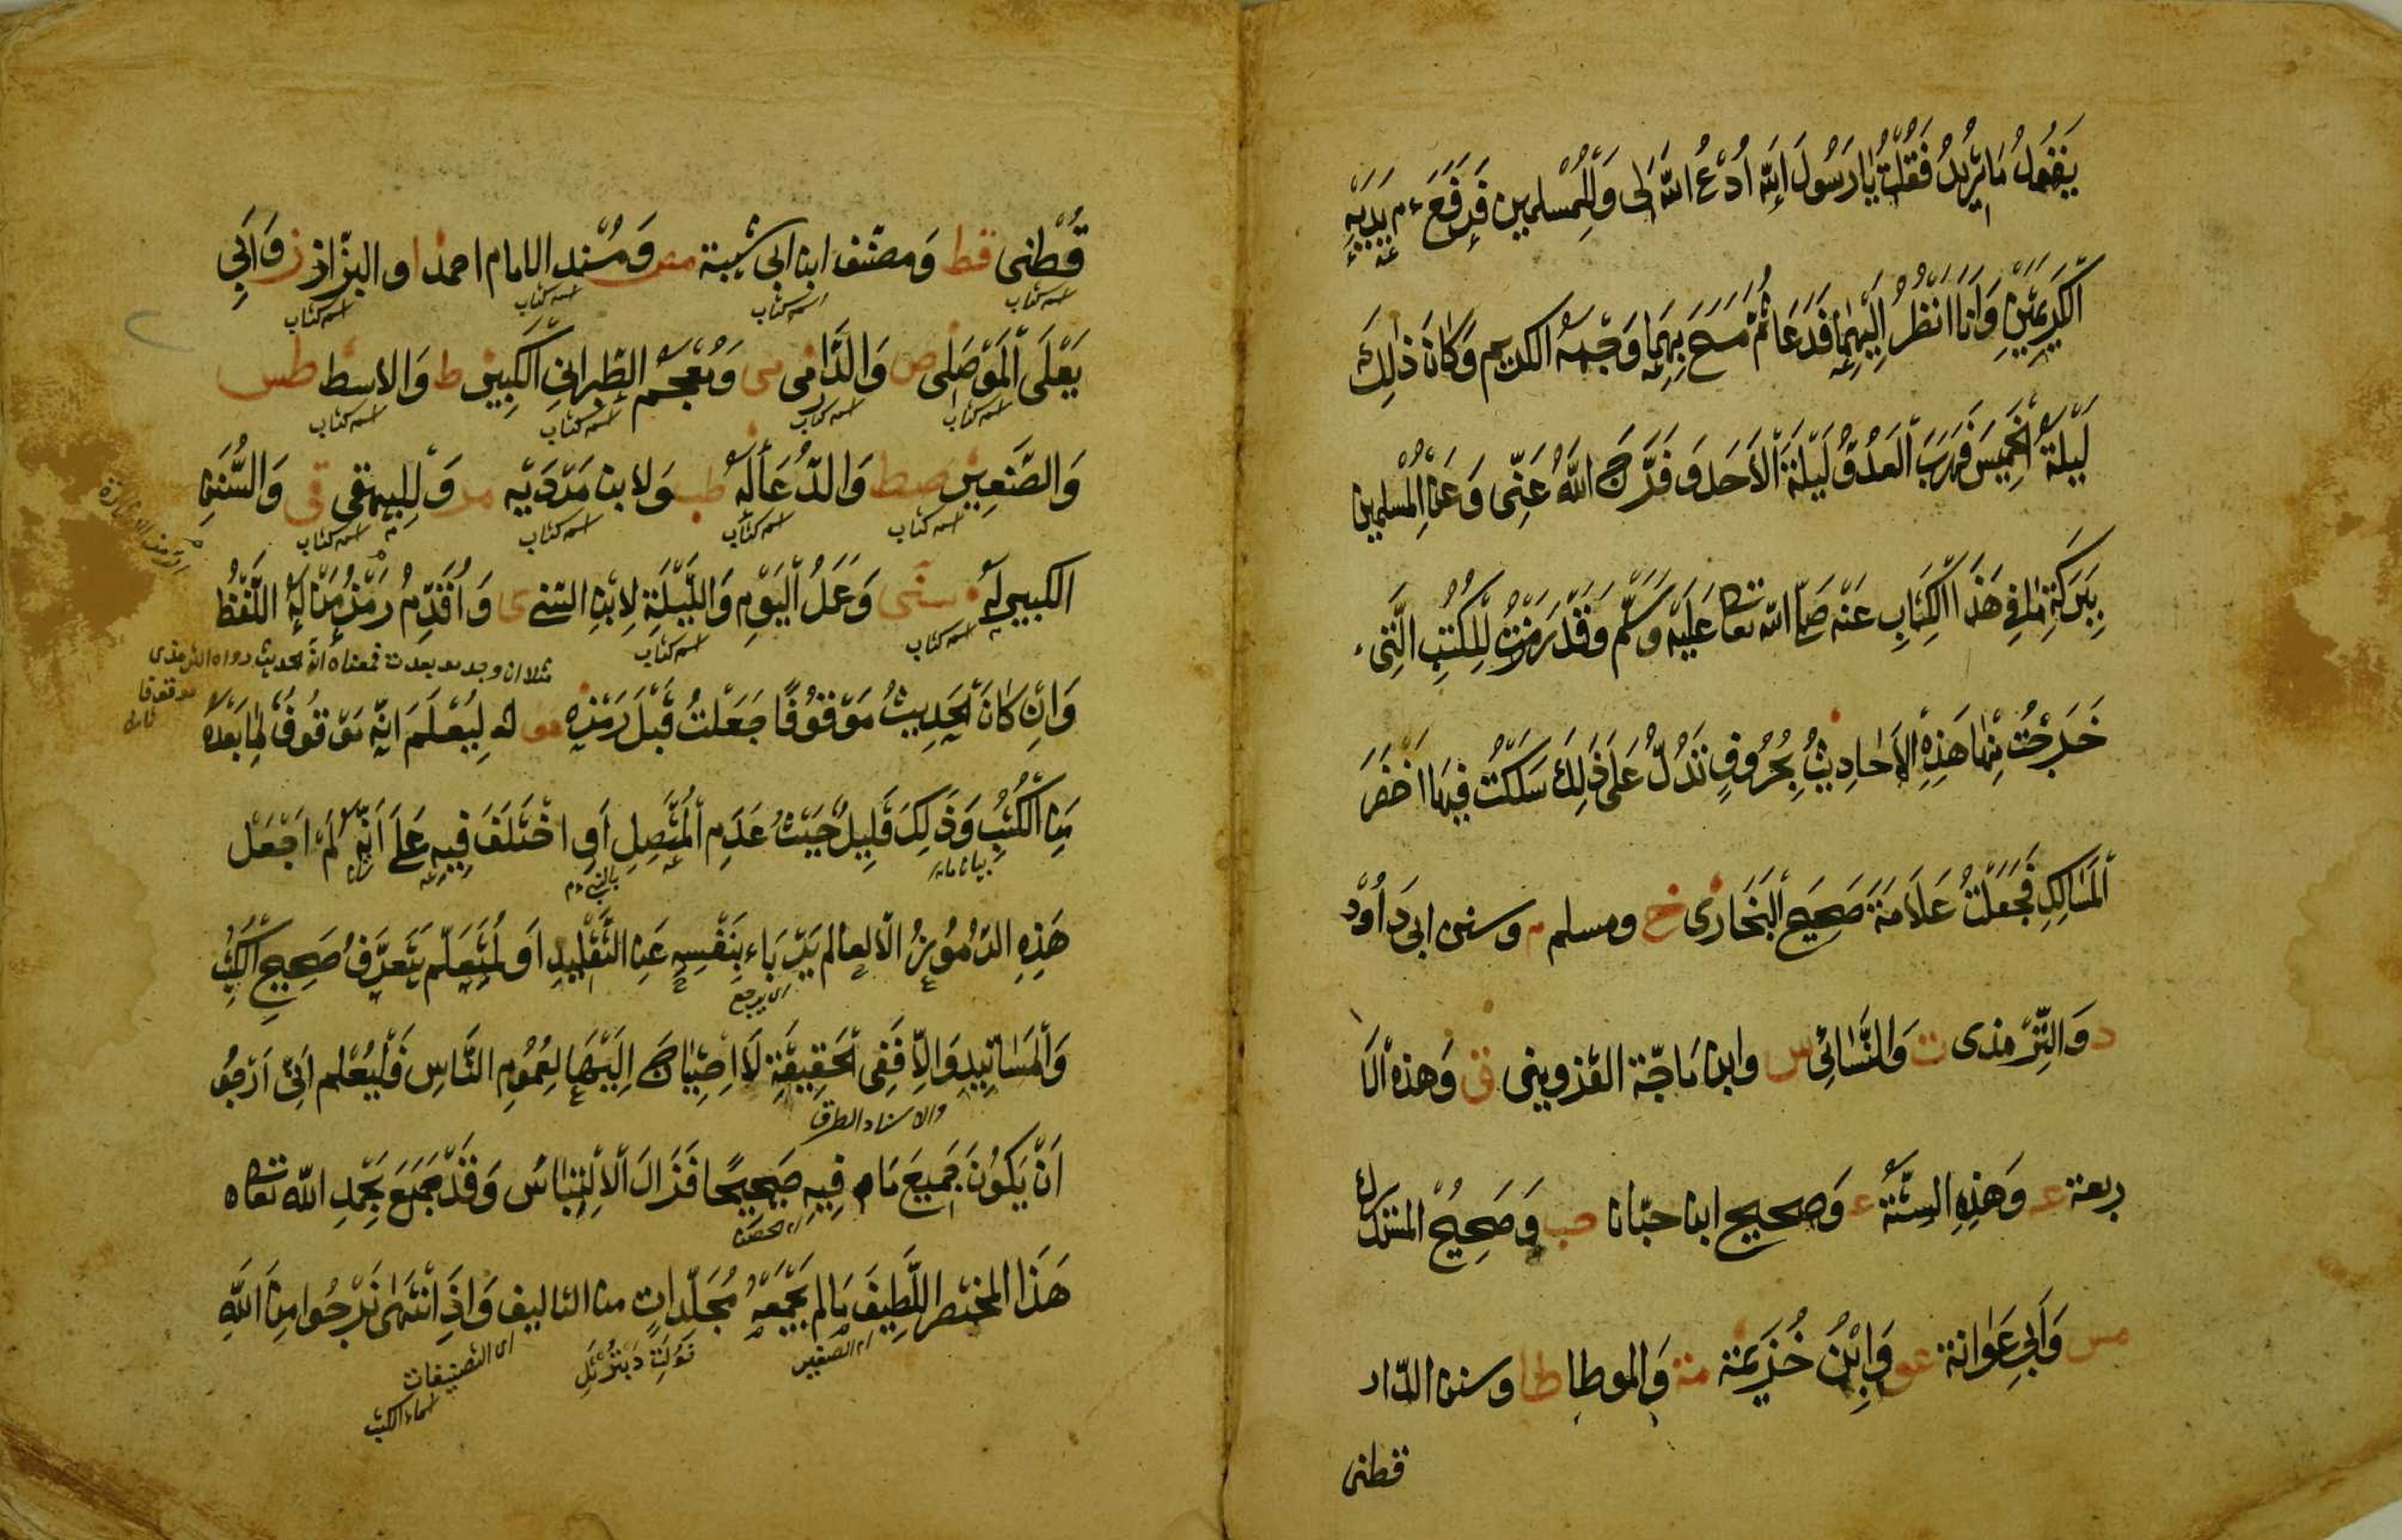 يَقُولُ مَا تُرِيدُ فَقُلْتُ يَا رَسُولَ اللّه اُدْعُ اللّهَ لِى وَلِلْمُسْلِمِين فَرَفَعَ ءم يَدَيْهِ
الْكَرِيمَتَيْنِ وَاَنَا اَنْظُرُ اِلَيْهِمَا فَدَعَا ثُمَّ مَسَحَ بِهِمَا وَجْهَهُ الكريم وَكَانَ ذٰلِكَ
لَيْلَةَ الْخَمِيسَ فَهَرَبَ الْعَدُوُّ لَيْلَةَ الْاَحَد وَفَرَّجَ اللّهُ عَنِّى وَعَنِ الْمُسْلِمِين
بِبَرَكَةِ مَا فِى هَذَا الْكِتَابِ عَنْهُ صَلَّى اللّه تعَالى عَلَيْهِ وَسَلَّم وَقَدْ رَمَزْتُ لِلْكُتُبِ الَّتِى
خَرَجْتُ مِنْهَا هَذِهِ الْاَحَادِيثَ بِحُرُوفٍ تَدُلُّ عَلَى ذَلِكَ سَلَكْتُ فِيهَا اَخْصَرَ
الْمَسَالِكِ فَجَعَلْتُ عَلَامَةَ صَحِيحِ الْبُخَارِى خ ومسلم م وسنن ابى دَاوُد
د وَالتِّرْمذى ت وَالنَّسَائِى س وابن مَاجَّة القزوينى ق وَهذه الْاَ
ربعة عه وَهَذِهِ السِّتَّةُ ع وَصحيح ابن حبّان حب وَصَحِيحُ المستدرك
مس وَاَبِى عَوَانة عو وَابْنُ خُزَيْمَة مة وَالموطا طا وسنن الدّار
قطنى
قُطْنى قط وَمصنف ابن ابى شيبة مص وَمُسْنَد الامام احمد ا والبزّار ز وَاَبِى
اسم كتاب اسم كتاب اسم كتاب اسم كتاب
يَعْلَى الْمَوْصَلِى ص وَالدَّارمى مى وَمُعْجَم الطَّبرانى الكَبِير ط وَالاوسط طس
اسم كتاب اسم كتاب اسم كتاب اسم كتاب
وَالصَّغِير صط وَالدُّعَاء لَهُ طب وَلابن مَرْدَوَيْه مر وَلِلبيهقى قى وَالسُّنَنِ
اسم كتاب اسم كتاب اسم كتاب اسم كتاب
الكبير لَهُ سنى وَعَمَلُ الْيَوْمِ وَاللَّيْلَةِ لِابْنِ السّنى ى وَاُقَدِّمُ رَمْزُ مَنْ لَهُ اللَّفْظُ
اسم كتاب اسم كتاب
وَاِنْ كَانَ الْحَدِيثُ مَوْقُوفًا جَعَلْتُ قَبْلَ رَمْزِهِ مو لِيُعْلَمَ اَنَّهُ مَوْقُوفٌ لِمَا بَعْدَهُ
مِنَ الْكُتُبِ وَذَلِكَ قَلِيلٌ حَيْثُ عَدَمِ الْمُتَّصِلِ اَوِ اخْتَلَفَ فِيهِ عَلَى اَنِّى لَمْ اَجْعَلْ
هَذِهِ الرُّمُوزُ اِلَّا لِعالم يَرْبَاء بِنَفْسِهِ عَنِ التَّقْلِيدِ اَوْ لِمُتَعَلِّم يَتَعَرَّفُ صَحِيحَ الْكُتُبِ
اى يرجع
وَالْمَسَانِيدِ وَاِلَّا فَفِى الْحَقِيقَةِ لَا اِحْتِيَاجَ اِلَيْهَا لِعُمُومِ النَّاسِ فَلْيُعْلَم اَنِّى اَرْجُو
والاسناد الطرق
اَنْ يَكُونَ جَمِيعُ مَا فِيهِ صَحِيحًا فَزَالَ الْاِلْتِبَاسُ وَقَدْ جَمَعَ بِحَمْدِ اللّه تَعَالى
هَذَا المختصر اللَّطِيفَ مَا لم تَجْمَعْهُ مُجَلَّدَاتٍ من التاليف وَاِذَا انْتَهَى نَرْجُوا مِنَ اللّهِ
اى الصغير
اى التصنيفات
اسماء الكتب